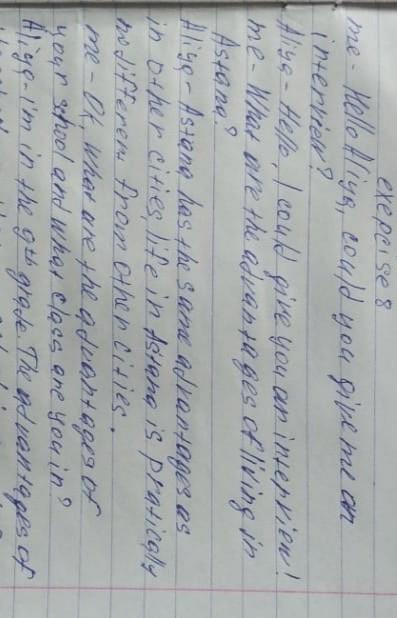 exercise 8
me - Hello Aliya, could you give me an
interview?
Aliya - Hello, I could give you an interview!
me - What are the advantages of living in
Astana?
Aliya - Astana has the same advantages as
in other cities, life in Astana is pratically
no different from other cities.
me - Ok, what are the advantages of
your school and what class are you in?
Aliya - i'm in the 9th grade. The advantages of